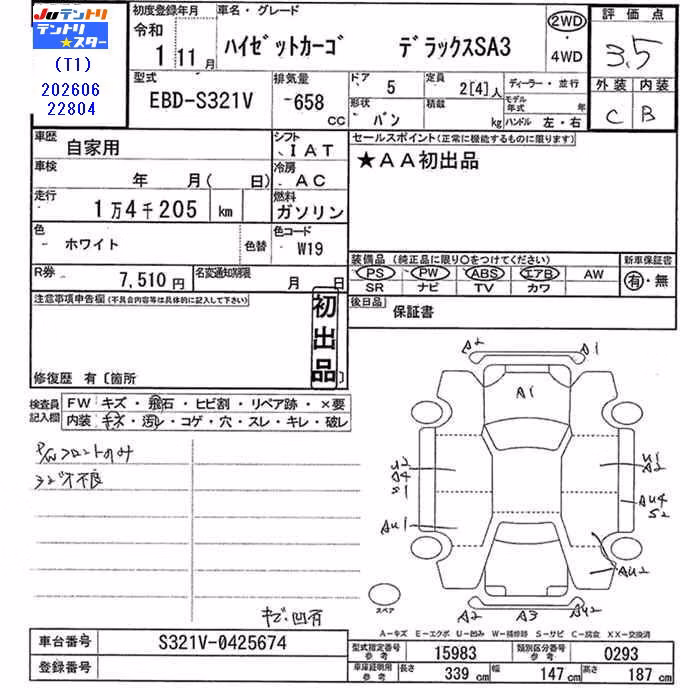 JU テントリ
テントリ
★スター
(T1)
202606
22804
初度登録年月 車名・グレード
令和
1 11月 ハイゼットカーゴ デラックスSA3
2WD
・
4WD
評価点
3.5
外装 内装
C B
型式 排気量 ドア 5 定員 2[4]人 ディーラー・並行
EBD-S321V -658 cc 形状 バン 積載 kg モデル年式 年
ハンドル 左・右
車歴 自家用 シフト IAT
車検 年 月( 日) 冷房 AC
走行 1万4千205 km 燃料 ガソリン
色 ホワイト 色替 色コード W19
R券 7,510円 名変通知期限 月 日
セールスポイント(正常に機能するものに限ります)
★AA初出品
装備品(純正品に限り○をつけてください) 新車保証書
PS PW ABS エアB AW 有・無
SR ナビ TV カワ
後日品 保証書
注意事項申告欄(不具合内容等は具体的に記入して下さい)
初出品
修復歴 有〔箇所 〕
検査員記入欄 FW キズ・飛石・ヒビ割・リペア跡・×要
内装 キズ・汚レ・コゲ・穴・スレ・キレ・破レ
P/Wフロントのみ
キズ・凹有
A2 A1
A1
U2
A4
S1
U1
A2
AU4
S2
AU1
AU2
A2 A3 AU2
スペア
A-キズ E-エクボ U-凹み W-補修跡 S-サビ C-腐食 XX-交換済
車台番号 S321V-0425674
登録番号
型式指定番号参考 15983 類別区分番号参考 0293
車庫証明用参考 長さ 339cm 幅 147cm 高さ 187cm